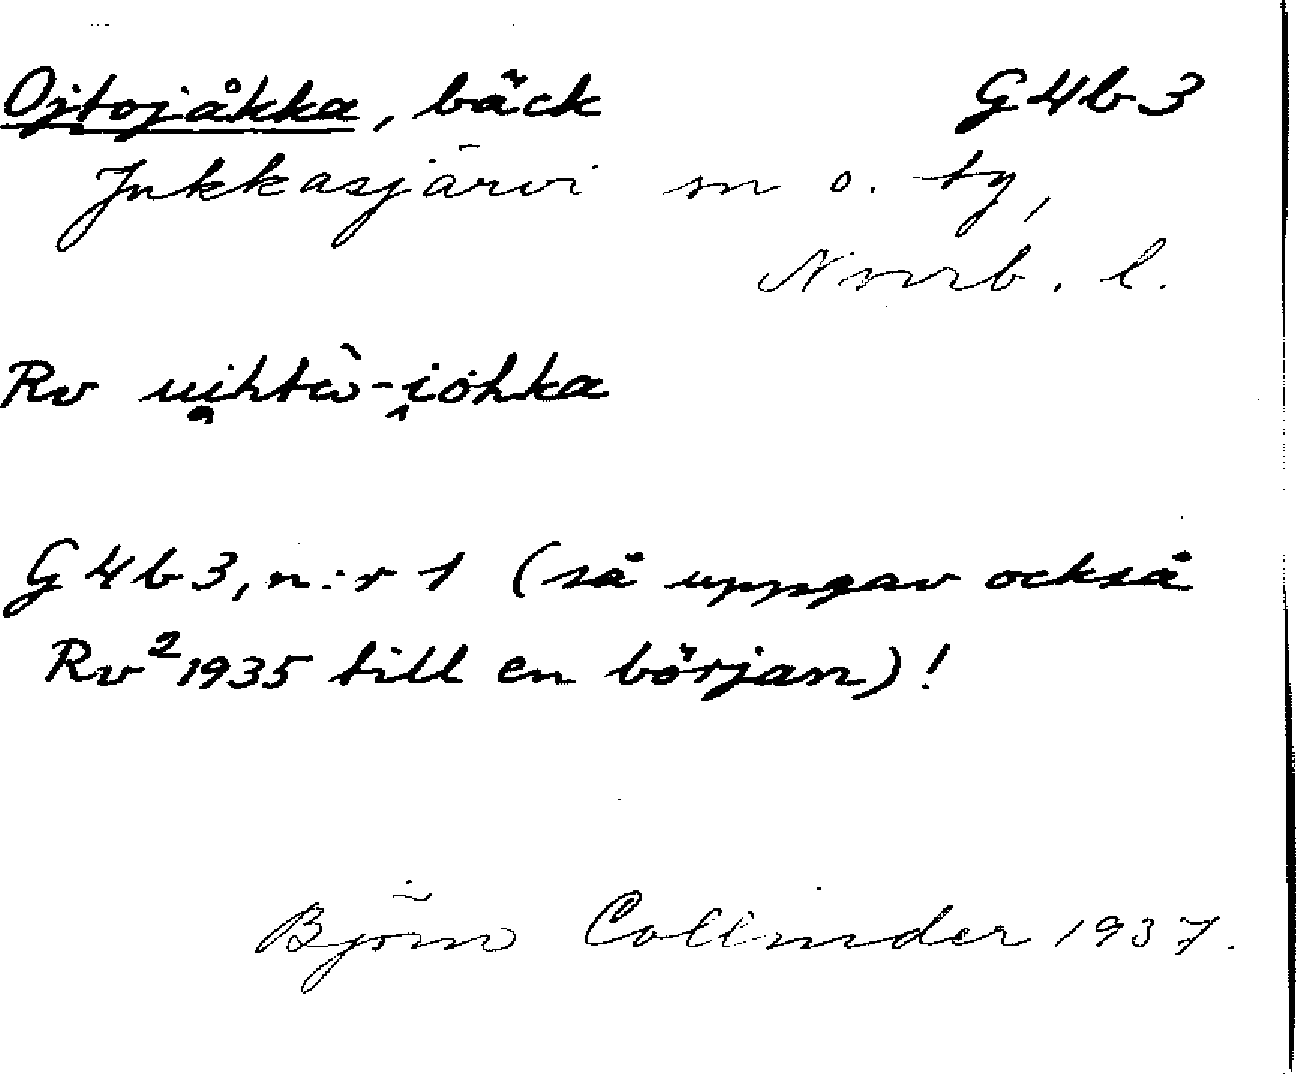 Ojtojåkka, bäck G4b3
Jukkasjärvi sn o. tg,
Norrb. l.
Rv uihtὰ-i̭ohka
G4b3, n:r 1 (så uppgav också
Rv² 1935 till en början)!
Björn Collinder 1937.